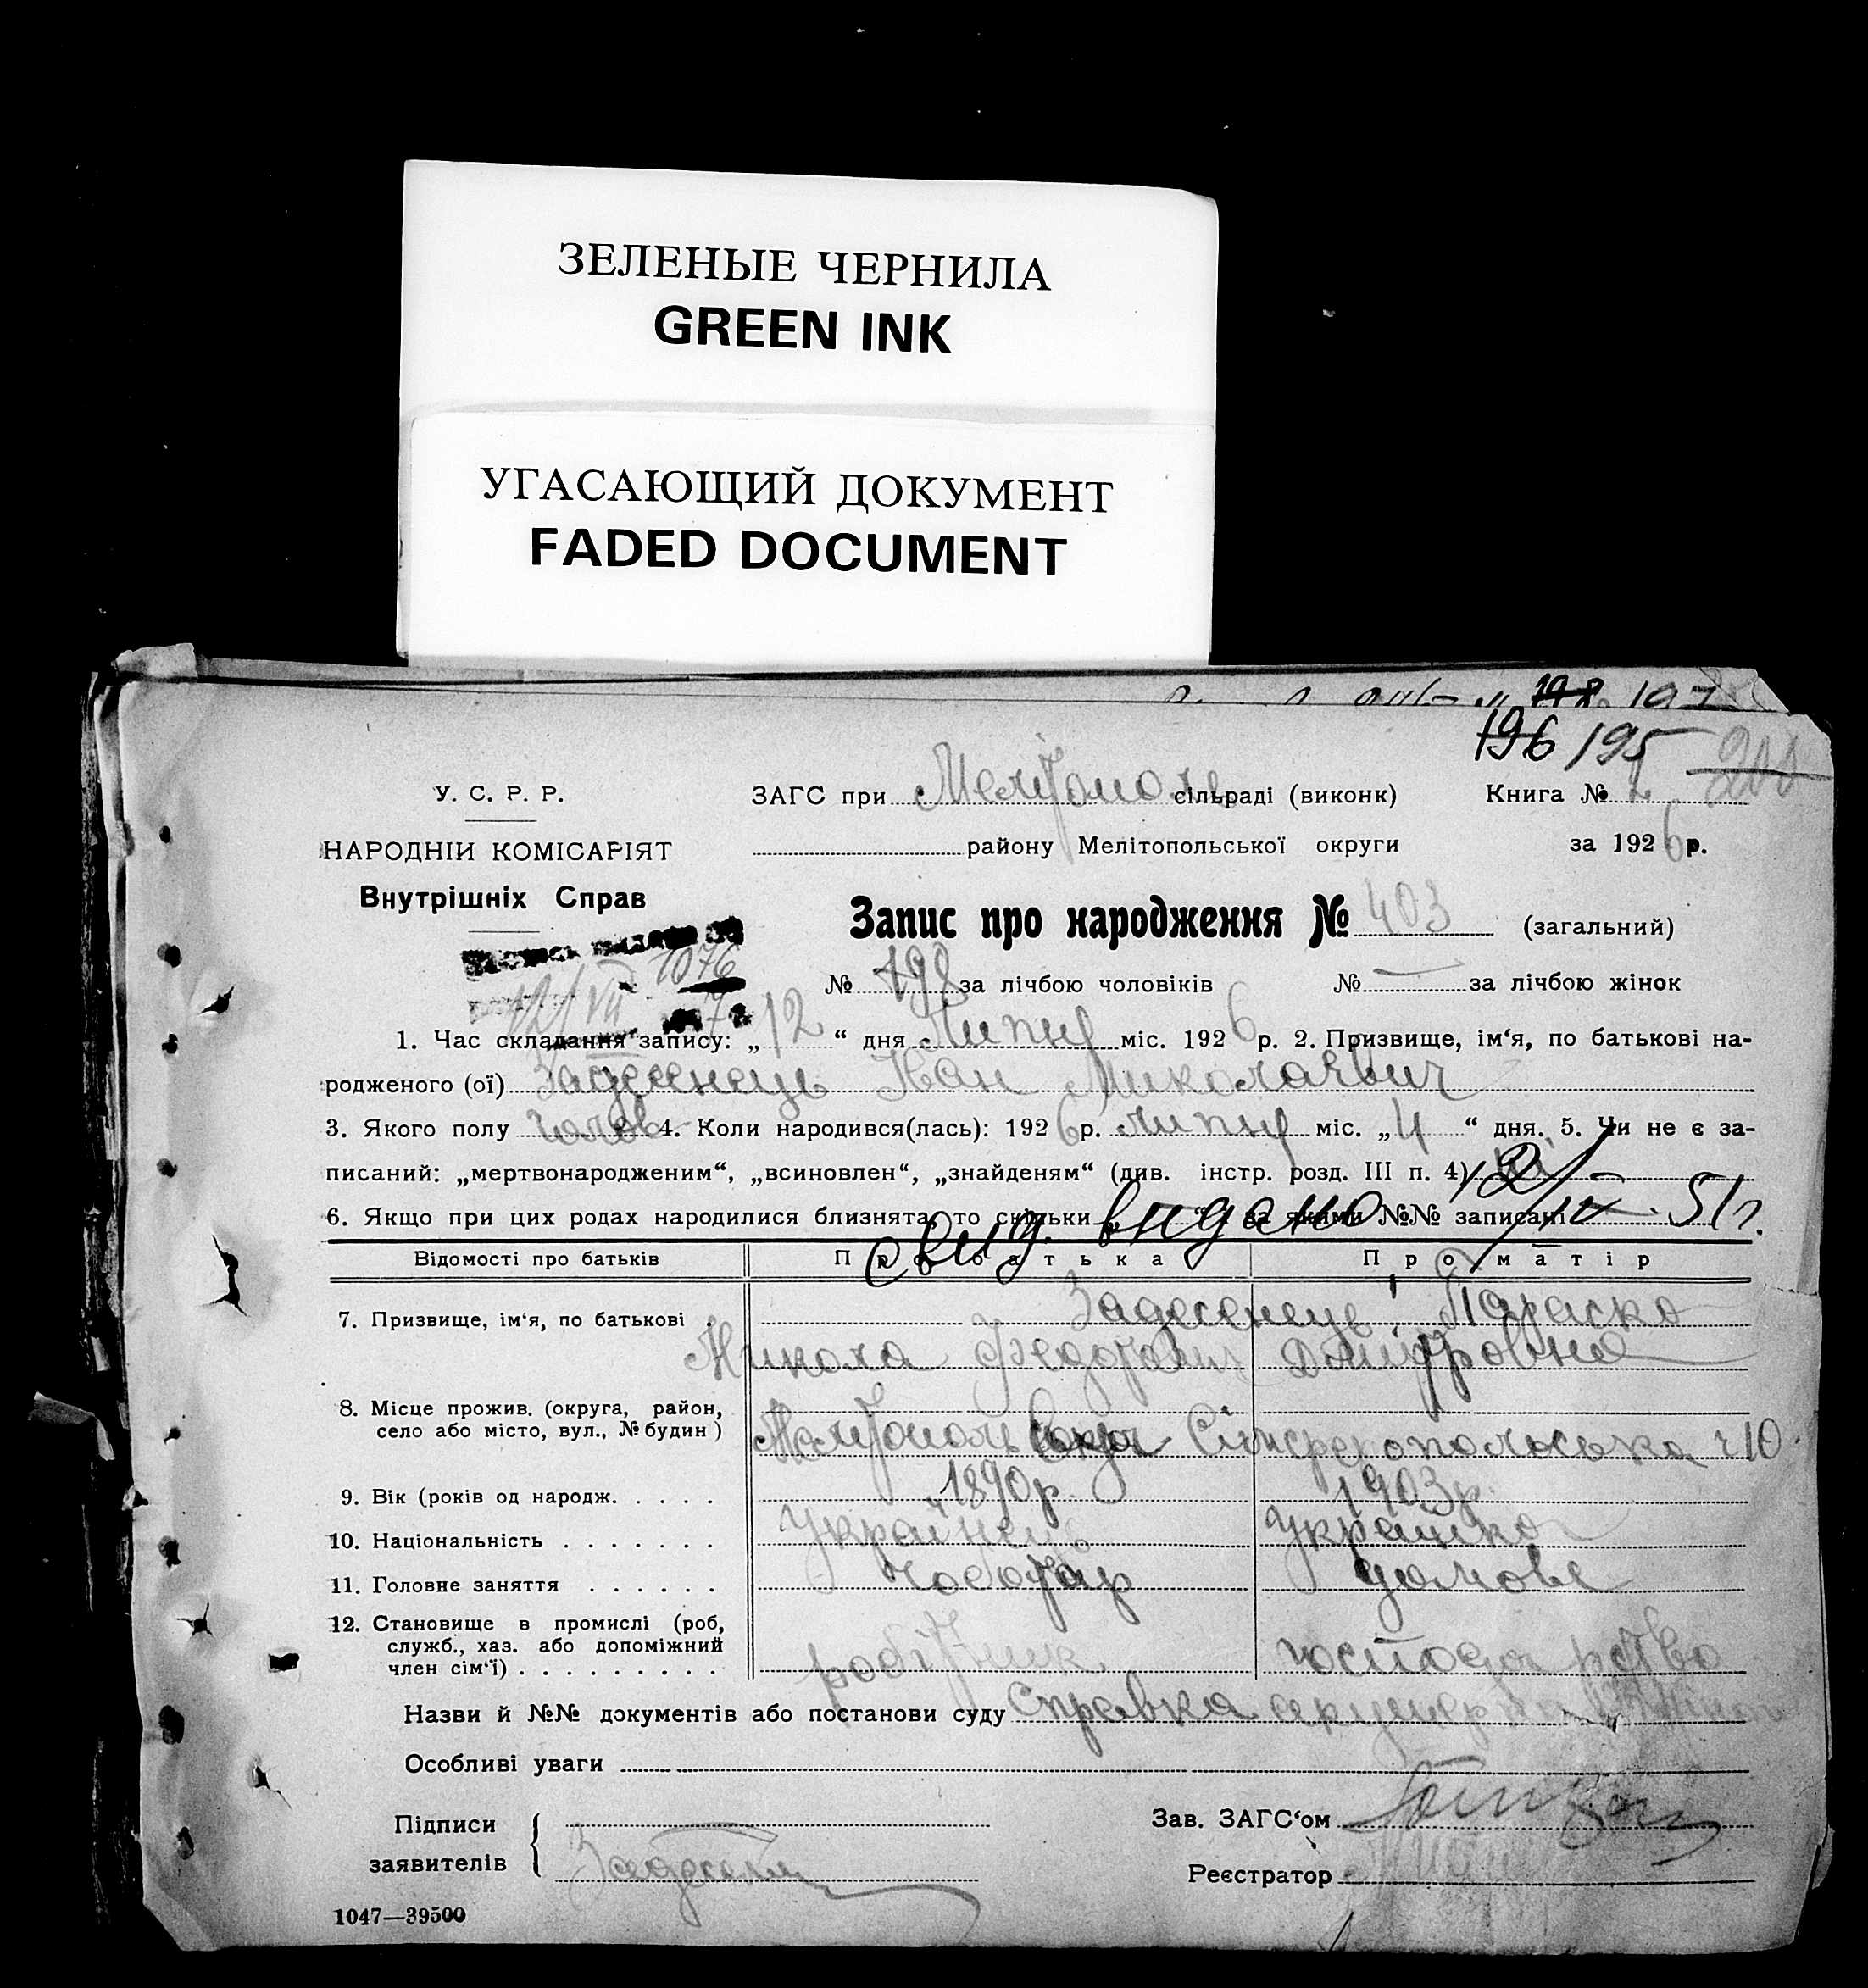 ЗЕЛЕНЫЕ ЧЕРНИЛА
GREEN INK
УГАСАЮЩИЙ ДОКУМЕНТ
FADED DOCUMENT
198 197
196 195 200
У. С. Р. Р.
ЗАГС при Мелітополь сільраді (виконк) Книга № 2
НАРОДНІЙ КОМІСАРІЯТ
району Мелітопольської округи за 1926 р.
Внутрішніх Справ
Запис про народження № 403 (загальний)
1076
№ 198 за лічбою чоловіків № — за лічбою жінок
12/VII
1. Час складання запису: „12“ дня Липня міс. 1926 р. 2. Призвище, ім‘я, по батькові на-
родженого (ої) Задесенець Іван Миколаевич
3. Якого полу чолов 4. Коли народився(лась): 1926 р. липня міс. „4“ дня. 5. Чи не є за-
писаний: „мертвонародженим“, „всиновлен“, „знайденям“ (див. інстр. розд. III п. 4) ні
6. Якщо при цих родах народилися близнята, то скільки „ “ за якими №№ записані
свид. видано 12/IX 51 г.
Відомості про батьків Про батька Про матір
7. Призвище, ім‘я, по батькові . Задесенець Параска
Микола Федорович Дмитровна
8. Місце прожив. (округа, район,
село або місто, вул., № будин) Мелітополь Сімферопольська ч 10
9. Вік (років од народж. . . . . 1890 р. 1903 р.
10. Національність . . . . . . . українець українка
11. Головне заняття . . . . . . Чоботар домове
12. Становище в промислі (роб,
служб., хаз. або допоміжний
член сім‘ї) . . . . . . . . . робітник господарство
Назви й №№ документів або постанови суду Справка акушерки
Особливі уваги
Підписи
заявителів
Зав. ЗАГС‘ом
Реєстратор
1047—39500